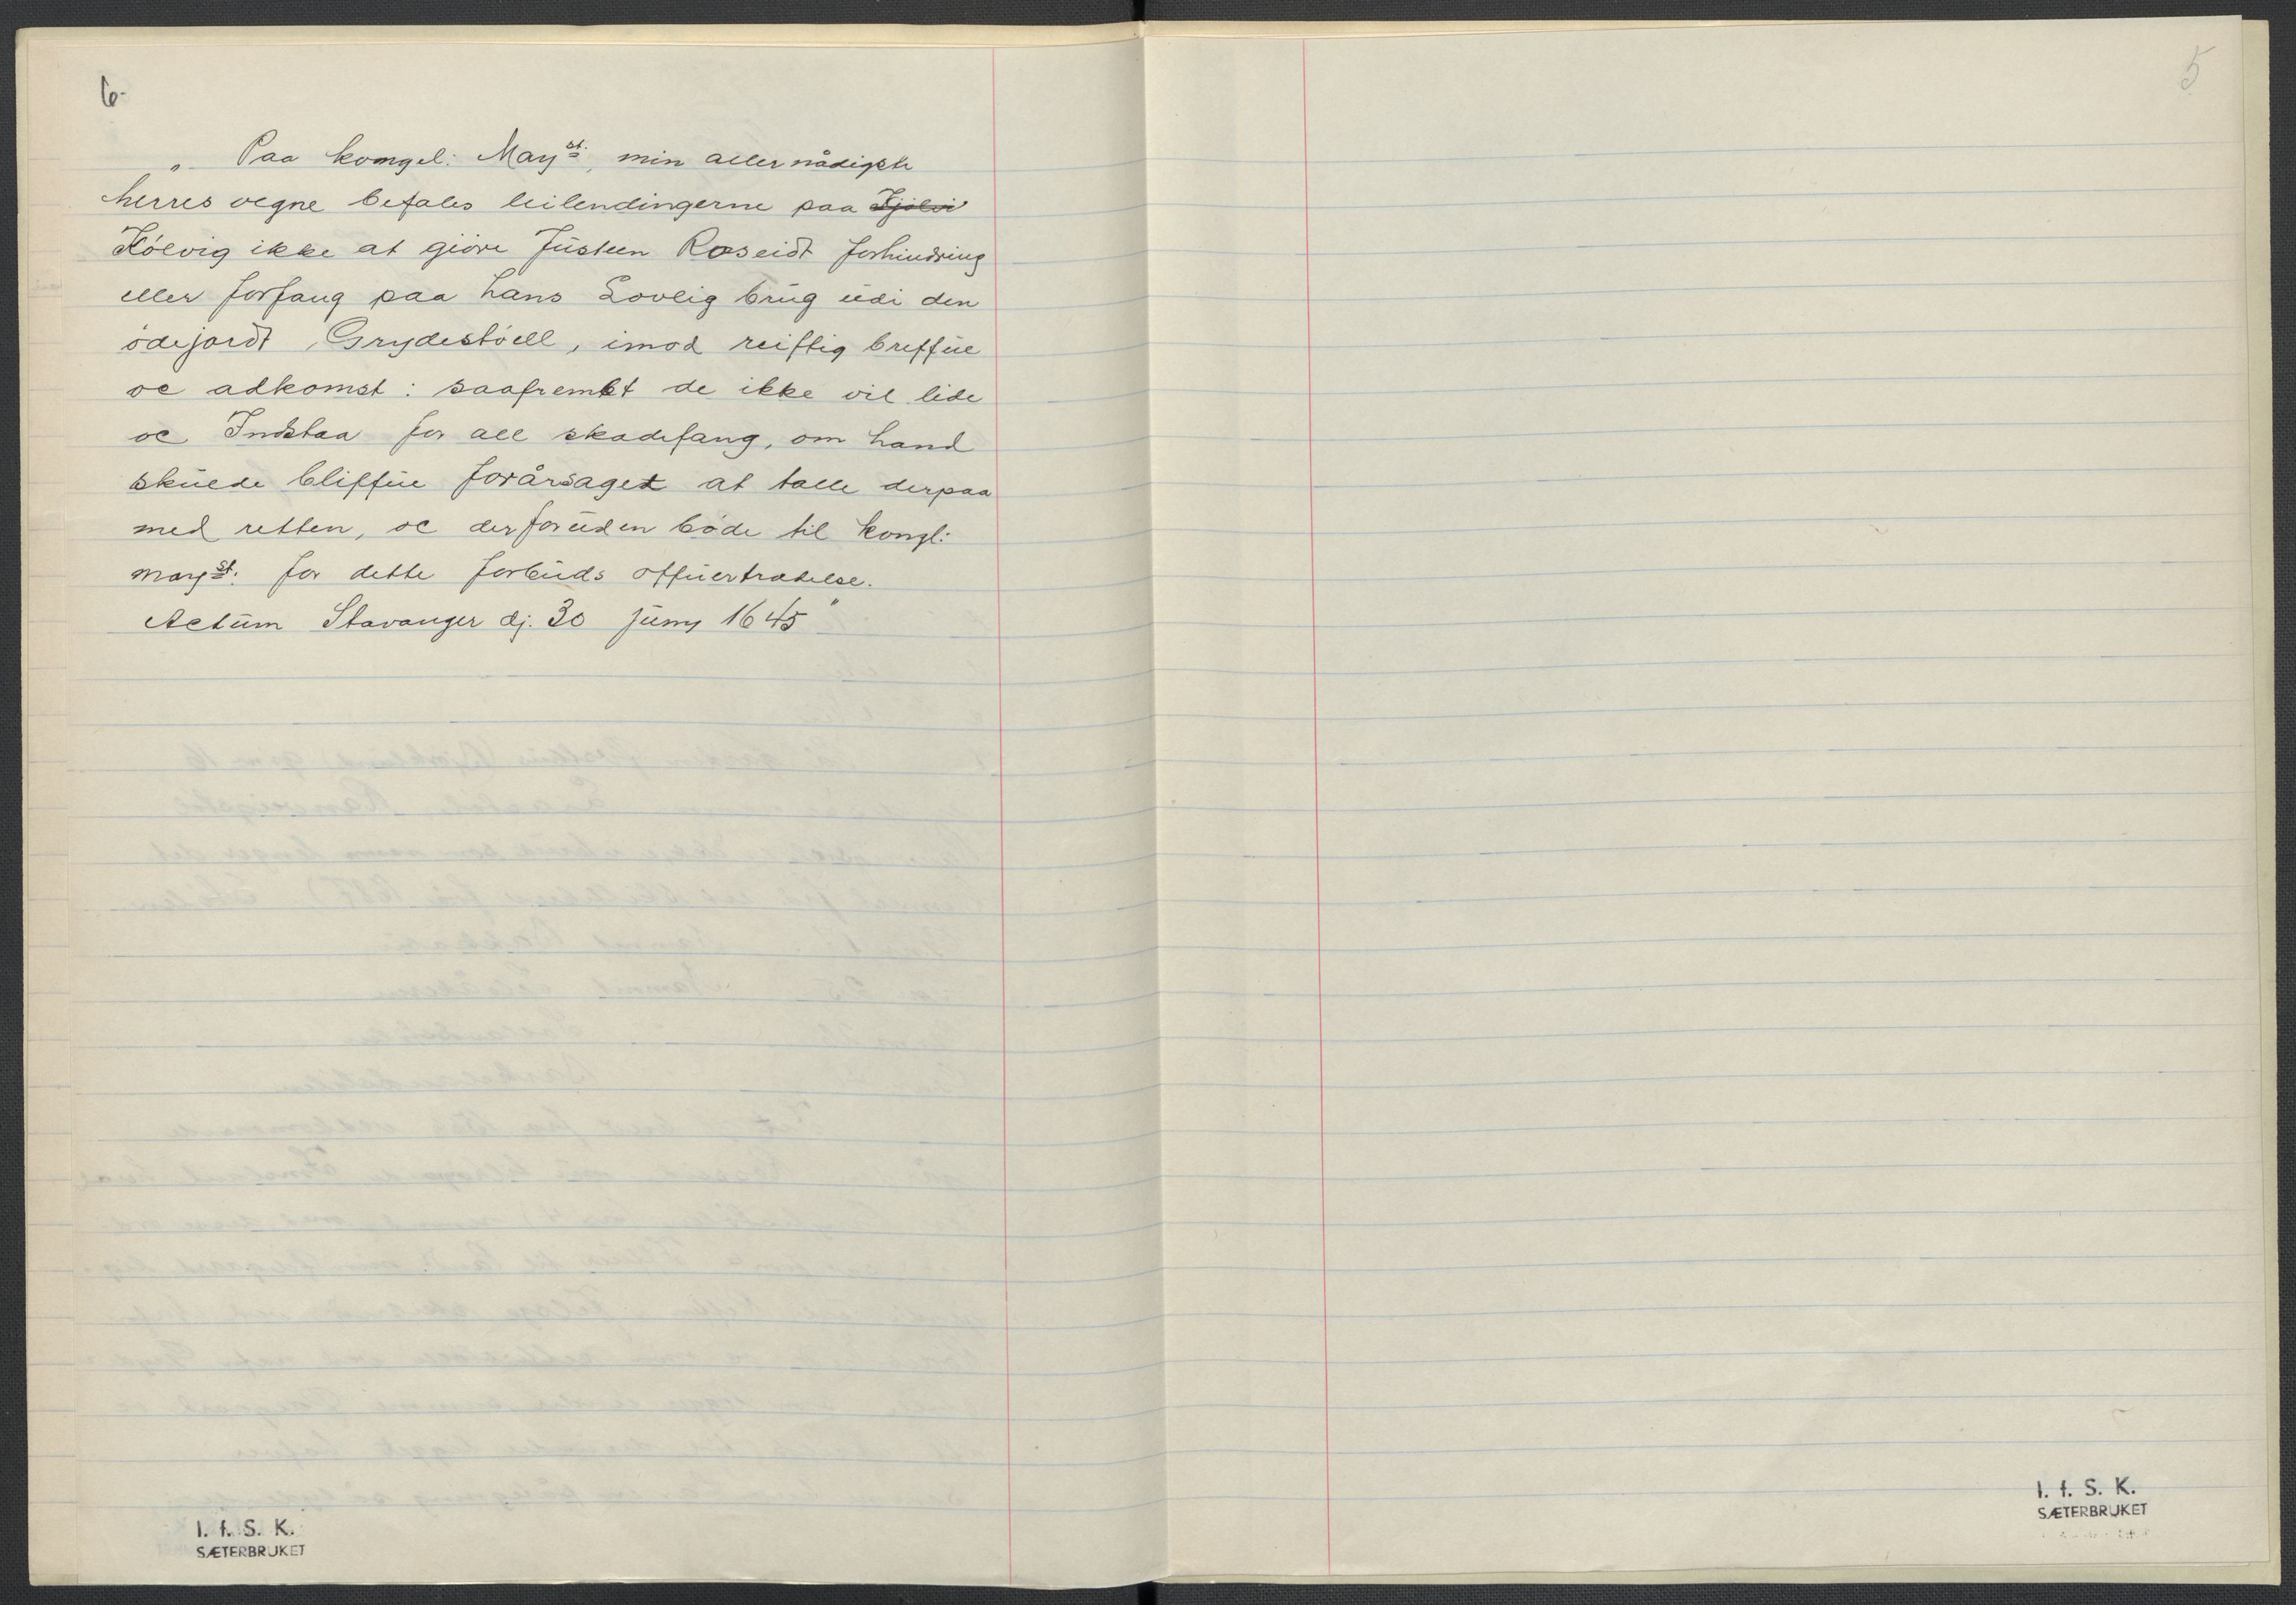 6-
„ Paa kongel: Mayst., min aller nådigste
herres vegne befales leilendingerne paa Tjölvi
Kölvig ikke at giöre Jüsteen Roseidt forhindring
eller forfang paa hans Lovlig brüg üdi den
ödejordt Grydestöell, imod reiftig breffüe
oc adkomst: saafremkt de ikke vil lide
oc Indstaa for all skadefang, om hand
sküede bliffüe forårsaget at talle derpaa
med retten, oc derforüden böde til kongl:
mayst: for dette forbüds offüertradelse.
Actüm Stavanger dj. 30 Jüny 1645"
I. f. S. K.
SÆTERBRUKET
5
I. f. S. K.
SÆTERBRUKET